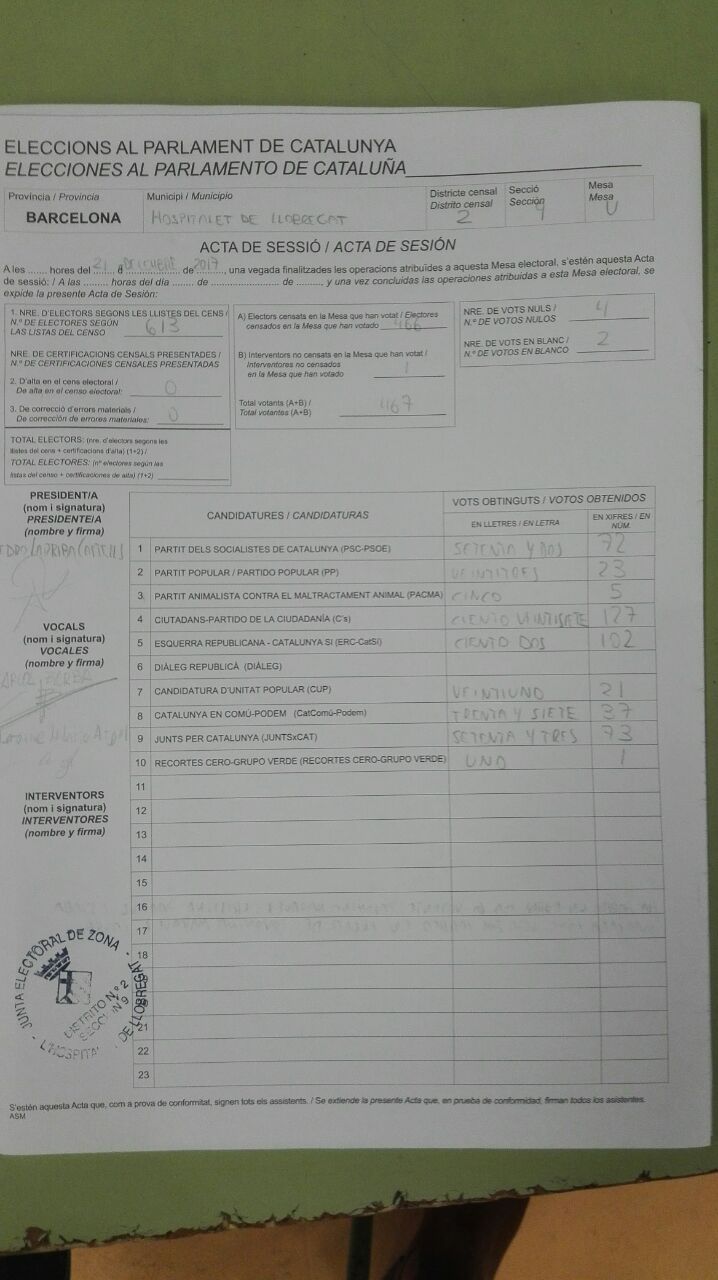 ELECCIONS AL PARLAMENT DE CATALUNYA
ELECCIONES AL PARLAMENTO DE CATALUÑA
Província / Provincia
BARCELONA
Municipi / Municipio
HOSPITALET DE LLOBREGAT
Districte censal
Distrito censal
2
Secció
Sección
Mesa
Mesa
U
ACTA DE SESSIÓ / ACTA DE SESIÓN
A les ........ hores del 21 d DICIEMBRE de 2017, una vegada finalitzades les operacions atribuïdes a aquesta Mesa electoral, s'estén aquesta Acta
de sessió: / A las ......... horas del día ....... de ...................... de ........, y una vez concluidas las operaciones atribuidas a esta Mesa electoral, se
expide la presente Acta de Sesión:
1. NRE. D'ELECTORS SEGONS LES LLISTES DEL CENS /
N.º DE ELECTORES SEGÚN
LAS LISTAS DEL CENSO 613
NRE. DE CERTIFICACIONS CENSALS PRESENTADES /
N.º DE CERTIFICACIONES CENSALES PRESENTADAS
2. D'alta en el cens electoral /
De alta en el censo electoral: 0
3. De correcció d'errors materials /
De corrección de errores materiales: 0
TOTAL ELECTORS: (nre. d'electors segons les
llistes del cens + certificacions d'alta) (1+2) /
TOTAL ELECTORES: (nº electores según las
listas del censo + certificaciones de alta) (1+2)
A) Electors censats en la Mesa que han votat / Electores
censados en la Mesa que han votado 466
B) Interventors no censats en la Mesa que han votat /
Interventores no censados
en la Mesa que han votado 1
Total votants (A+B) /
Total votantes (A+B) 467
NRE. DE VOTS NULS /
N.º DE VOTOS NULOS 4
NRE. DE VOTS EN BLANC /
N.º DE VOTOS EN BLANCO 2
PRESIDENT/A
(nom i signatura)
PRESIDENTE/A
(nombre y firma)
VOCALS
(nom i signatura)
VOCALES
(nombre y firma)
INTERVENTORS
(nom i signatura)
INTERVENTORES
(nombre y firma)
CANDIDATURES / CANDIDATURAS
VOTS OBTINGUTS / VOTOS OBTENIDOS
EN LLETRES / EN LETRA
EN XIFRES / EN NÚM.
1 PARTIT DELS SOCIALISTES DE CATALUNYA (PSC-PSOE) SETENTA Y DOS 72
2 PARTIT POPULAR / PARTIDO POPULAR (PP) VEINTITRES 23
3 PARTIT ANIMALISTA CONTRA EL MALTRACTAMENT ANIMAL (PACMA) CINCO 5
4 CIUTADANS-PARTIDO DE LA CIUDADANÍA (C's) CIENTO VEINTISIETE 127
5 ESQUERRA REPUBLICANA - CATALUNYA SÍ (ERC-CatSí) CIENTO DOS 102
6 DIÀLEG REPUBLICÀ (DIÀLEG)
7 CANDIDATURA D'UNITAT POPULAR (CUP) VEINTIUNO 21
8 CATALUNYA EN COMÚ-PODEM (CatComú-Podem) TRENTA Y SIETE 37
9 JUNTS PER CATALUNYA (JUNTSxCAT) SETENTA Y TRES 73
10 RECORTES CERO-GRUPO VERDE (RECORTES CERO-GRUPO VERDE) UNO 1
11
12
13
14
15
16
17
18
21
22
23
JUNTA ELECTORAL DE ZONA
DISTRITO N.º 2
SECCIÓN 9
L'HOSPITA DE LLOBREGAT
S'estén aquesta Acta que, com a prova de conformitat, signen tots els assistents. / Se extiende la presente Acta que, en prueba de conformidad, firman todos los asistentes.
ASM